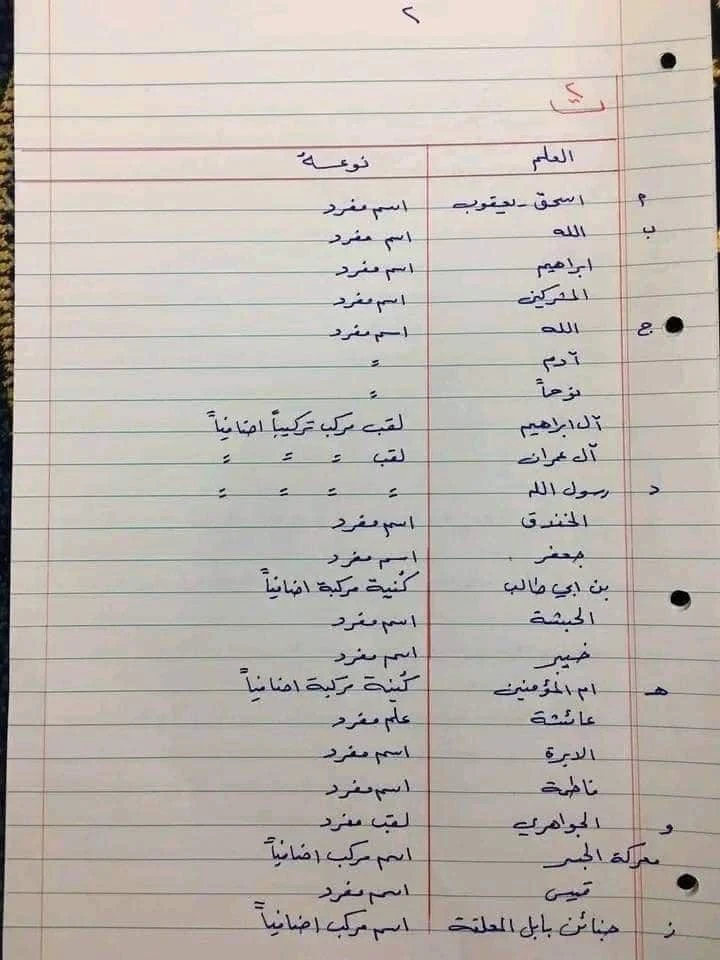 ٢
ت٢
العلم نوعه
أ اسحق - يعقوب اسم مفرد
ب الله اسم مفرد
ابراهيم اسم مفرد
المشركين اسم مفرد
ج الله اسم مفرد
آدم =
نوحاً =
آل ابراهيم لقب مركب تركيباً اضافياً
آل عمران لقب = = =
د رسول الله = = = =
الخندق اسم مفرد
جعفر اسم مفرد
بن ابي طالب كُنية مركبة اضافياً
الحبشة اسم مفرد
خيبر اسم مفرد
هـ ام المؤمنين كُنية مركبة اضافياً
عائشة علم مفرد
الابرة اسم مفرد
فاطمة اسم مفرد
و الجواهري لقب مفرد
معركة الجسر اسم مركب اضافياً
قيس اسم مفرد
ز جنائن بابل المعلقة اسم مركب اضافياً